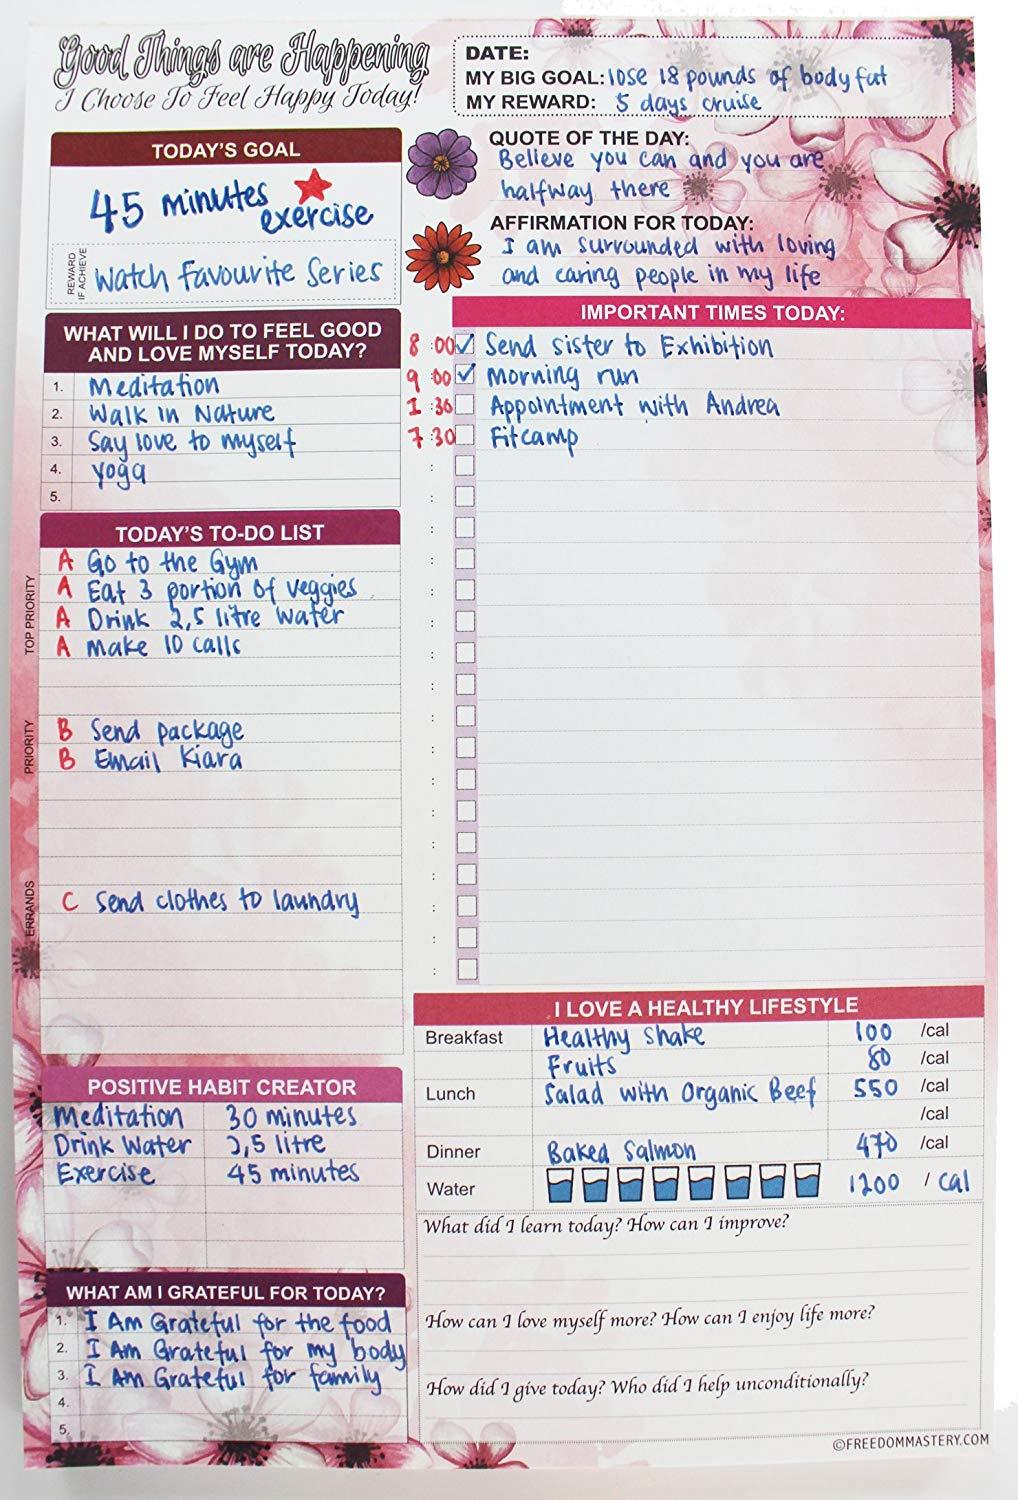 Good Things are Happening
I Choose To Feel Happy Today!
DATE:
MY BIG GOAL: lose 18 pounds of body fat
MY REWARD: 5 days cruise
TODAY'S GOAL
45 minutes exercise
REWARD IF ACHIEVE
Watch Favourite Series
QUOTE OF THE DAY:
Believe you can and you are
halfway there
AFFIRMATION FOR TODAY:
I am surrounded with loving
and caring people in my life
WHAT WILL I DO TO FEEL GOOD
AND LOVE MYSELF TODAY?
1. Meditation
2. Walk in Nature
3. Say love to myself
4. Yoga
5.
IMPORTANT TIMES TODAY:
8:00 Send sister to Exhibition
9:00 Morning run
1:30 Appointment with Andrea
7:30 Fitcamp
TODAY'S TO-DO LIST
TOP PRIORITY
A Go to the Gym
A Eat 3 portion of veggies
A Drink 2,5 litre water
A make 10 calls
PRIORITY
B Send package
B Email Kiara
ERRANDS
C Send clothes to laundry
POSITIVE HABIT CREATOR
Meditation 30 minutes
Drink Water 2,5 litre
Exercise 45 minutes
WHAT AM I GRATEFUL FOR TODAY?
1. I Am Grateful for the food
2. I Am Grateful for my body
3. I Am Grateful for family
4.
5.
I LOVE A HEALTHY LIFESTYLE
Breakfast Healthy Shake 100 /cal
Fruits 80 /cal
Lunch Salad with Organic Beef 550 /cal
/cal
Dinner Baked Salmon 470 /cal
Water 1200 / cal
What did I learn today? How can I improve?
How can I love myself more? How can I enjoy life more?
How did I give today? Who did I help unconditionally?
©FREEDOMMASTERY.COM